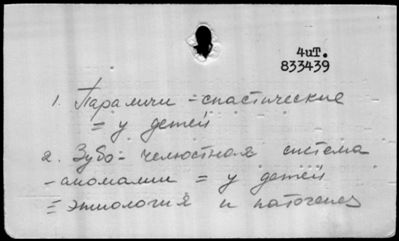 4иТ.
833439
1. Параличи - спастические
= у детей
2. Зубо- челюстная система
- аномалии = у детей
= этиология и патогенез